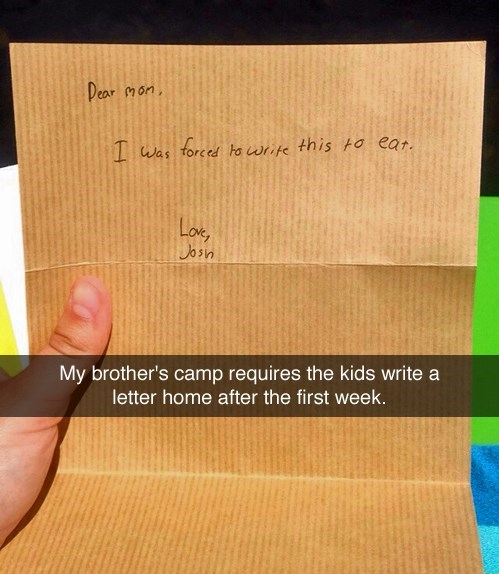 Dear mom,
I was forced to write this to eat.
Love,
Josh
My brother's camp requires the kids write a
letter home after the first week.